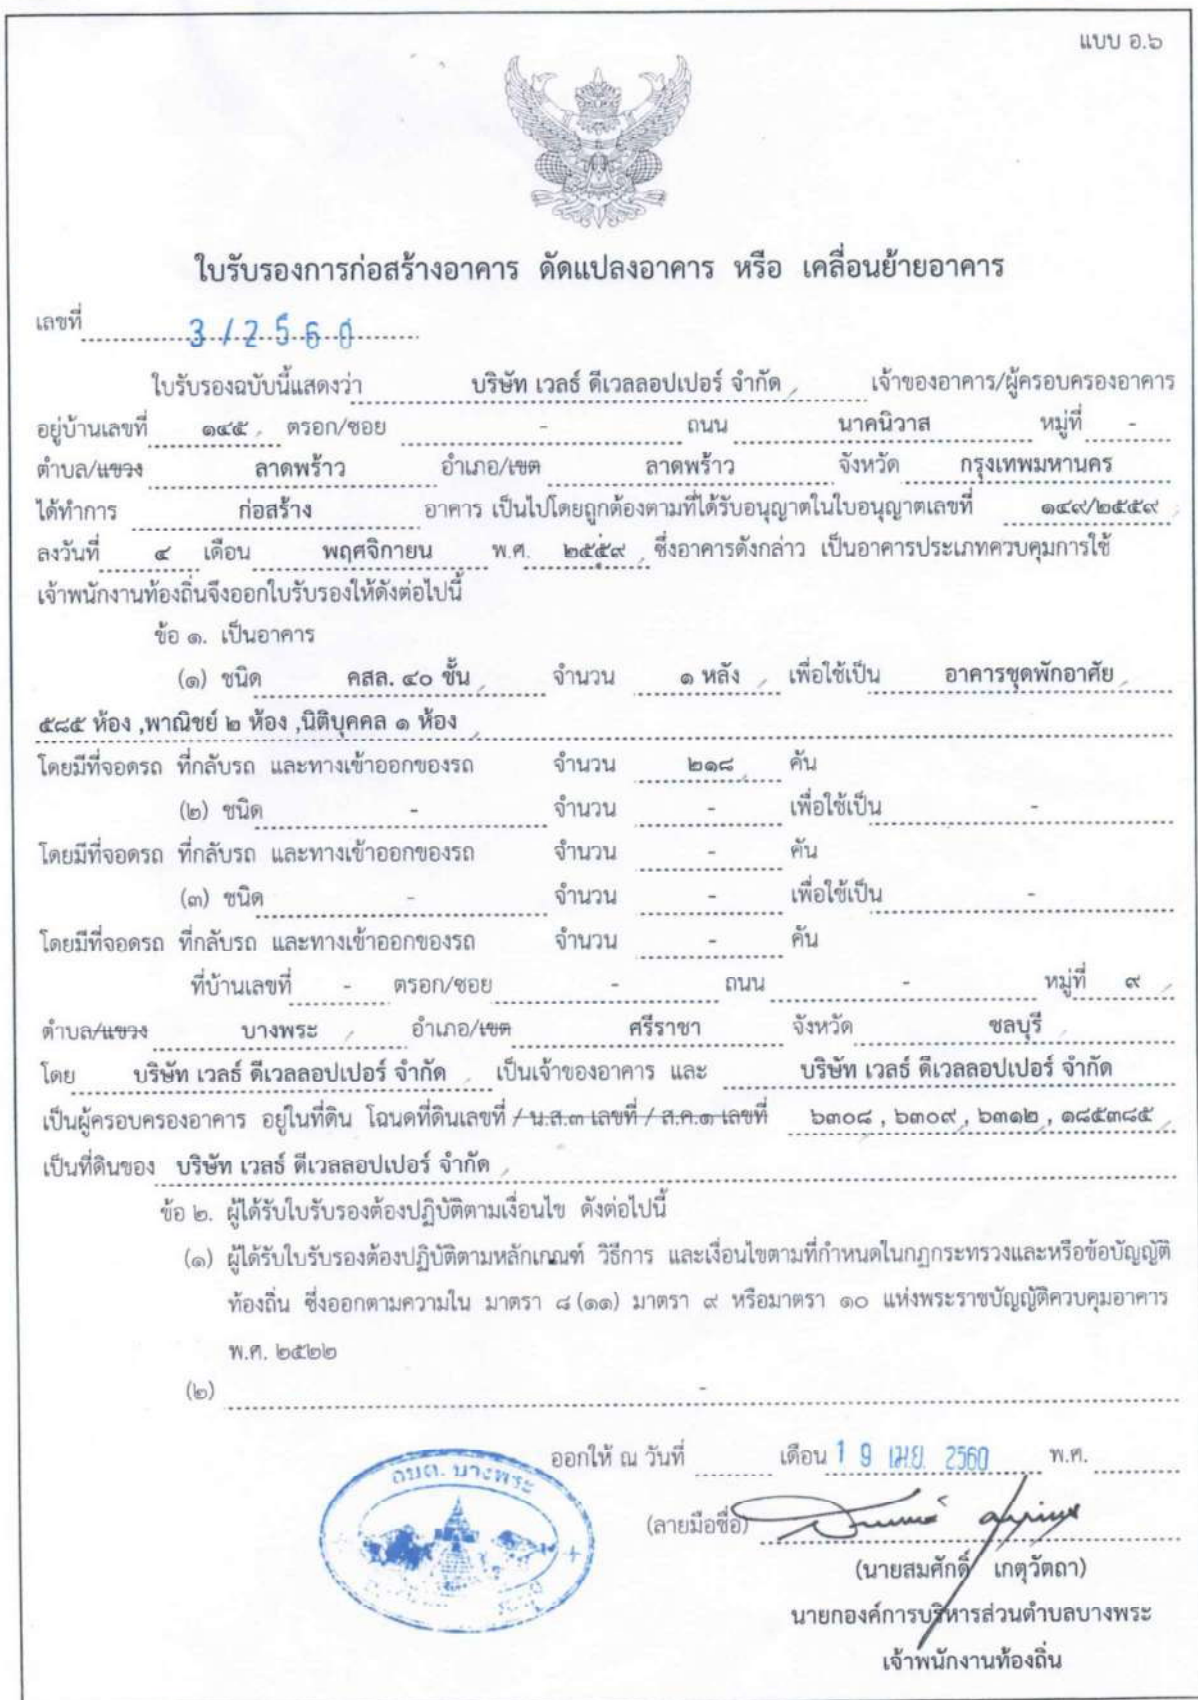 แบบ อ.๖
ใบรับรองการก่อสร้างอาคาร ดัดแปลงอาคาร หรือ เคลื่อนย้ายอาคาร
เลขที่ 3 / 2 5 6 0
ใบรับรองฉบับนี้แสดงว่า บริษัท เวลธ์ ดีเวลลอปเปอร์ จำกัด เจ้าของอาคาร/ผู้ครอบครองอาคาร
อยู่บ้านเลขที่ ๑๔๕ ตรอก/ซอย - ถนน นาคนิวาส หมู่ที่ -
ตำบล/แขวง ลาดพร้าว อำเภอ/เขต ลาดพร้าว จังหวัด กรุงเทพมหานคร
ได้ทำการ ก่อสร้าง อาคาร เป็นไปโดยถูกต้องตามที่ได้รับอนุญาตในใบอนุญาตเลขที่ ๑๔๙/๒๕๕๙
ลงวันที่ ๔ เดือน พฤศจิกายน พ.ศ. ๒๕๕๙ ซึ่งอาคารดังกล่าว เป็นอาคารประเภทควบคุมการใช้
เจ้าพนักงานท้องถิ่นจึงออกใบรับรองให้ดังต่อไปนี้
ข้อ ๑. เป็นอาคาร
(๑) ชนิด คสล. ๔๐ ชั้น จำนวน ๑ หลัง เพื่อใช้เป็น อาคารชุดพักอาศัย
๕๘๕ ห้อง ,พาณิชย์ ๒ ห้อง ,นิติบุคคล ๑ ห้อง
โดยมีที่จอดรถ ที่กลับรถ และทางเข้าออกของรถ จำนวน ๒๑๘ คัน
(๒) ชนิด - จำนวน - เพื่อใช้เป็น -
โดยมีที่จอดรถ ที่กลับรถ และทางเข้าออกของรถ จำนวน - คัน
(๓) ชนิด - จำนวน - เพื่อใช้เป็น -
โดยมีที่จอดรถ ที่กลับรถ และทางเข้าออกของรถ จำนวน - คัน
ที่บ้านเลขที่ - ตรอก/ซอย - ถนน - หมู่ที่ ๙
ตำบล/แขวง บางพระ อำเภอ/เขต ศรีราชา จังหวัด ชลบุรี
โดย บริษัท เวลธ์ ดีเวลลอปเปอร์ จำกัด เป็นเจ้าของอาคาร และ บริษัท เวลธ์ ดีเวลลอปเปอร์ จำกัด
เป็นผู้ครอบครองอาคาร อยู่ในที่ดิน โฉนดที่ดินเลขที่ / น.ส.๓ เลขที่ / ส.ค.๑ เลขที่ ๖๓๐๘ , ๖๓๐๙ , ๖๓๑๒ , ๑๘๕๓๘๕
เป็นที่ดินของ บริษัท เวลธ์ ดีเวลลอปเปอร์ จำกัด
ข้อ ๒. ผู้ได้รับใบรับรองต้องปฏิบัติตามเงื่อนไข ดังต่อไปนี้
(๑) ผู้ได้รับใบรับรองต้องปฏิบัติตามหลักเกณฑ์ วิธีการ และเงื่อนไขตามที่กำหนดในกฎกระทรวงและหรือข้อบัญญัติ
ท้องถิ่น ซึ่งออกตามความใน มาตรา ๘ (๑๑) มาตรา ๙ หรือมาตรา ๑๐ แห่งพระราชบัญญัติควบคุมอาคาร
พ.ศ. ๒๕๒๒
(๒) -
ออกให้ ณ วันที่ เดือน 1 9 เม.ย. 2560 พ.ศ.
อบต. บางพระ
(ลายมือชื่อ)
(นายสมศักดิ์ เกตุวัตถา)
นายกองค์การบริหารส่วนตำบลบางพระ
เจ้าพนักงานท้องถิ่น